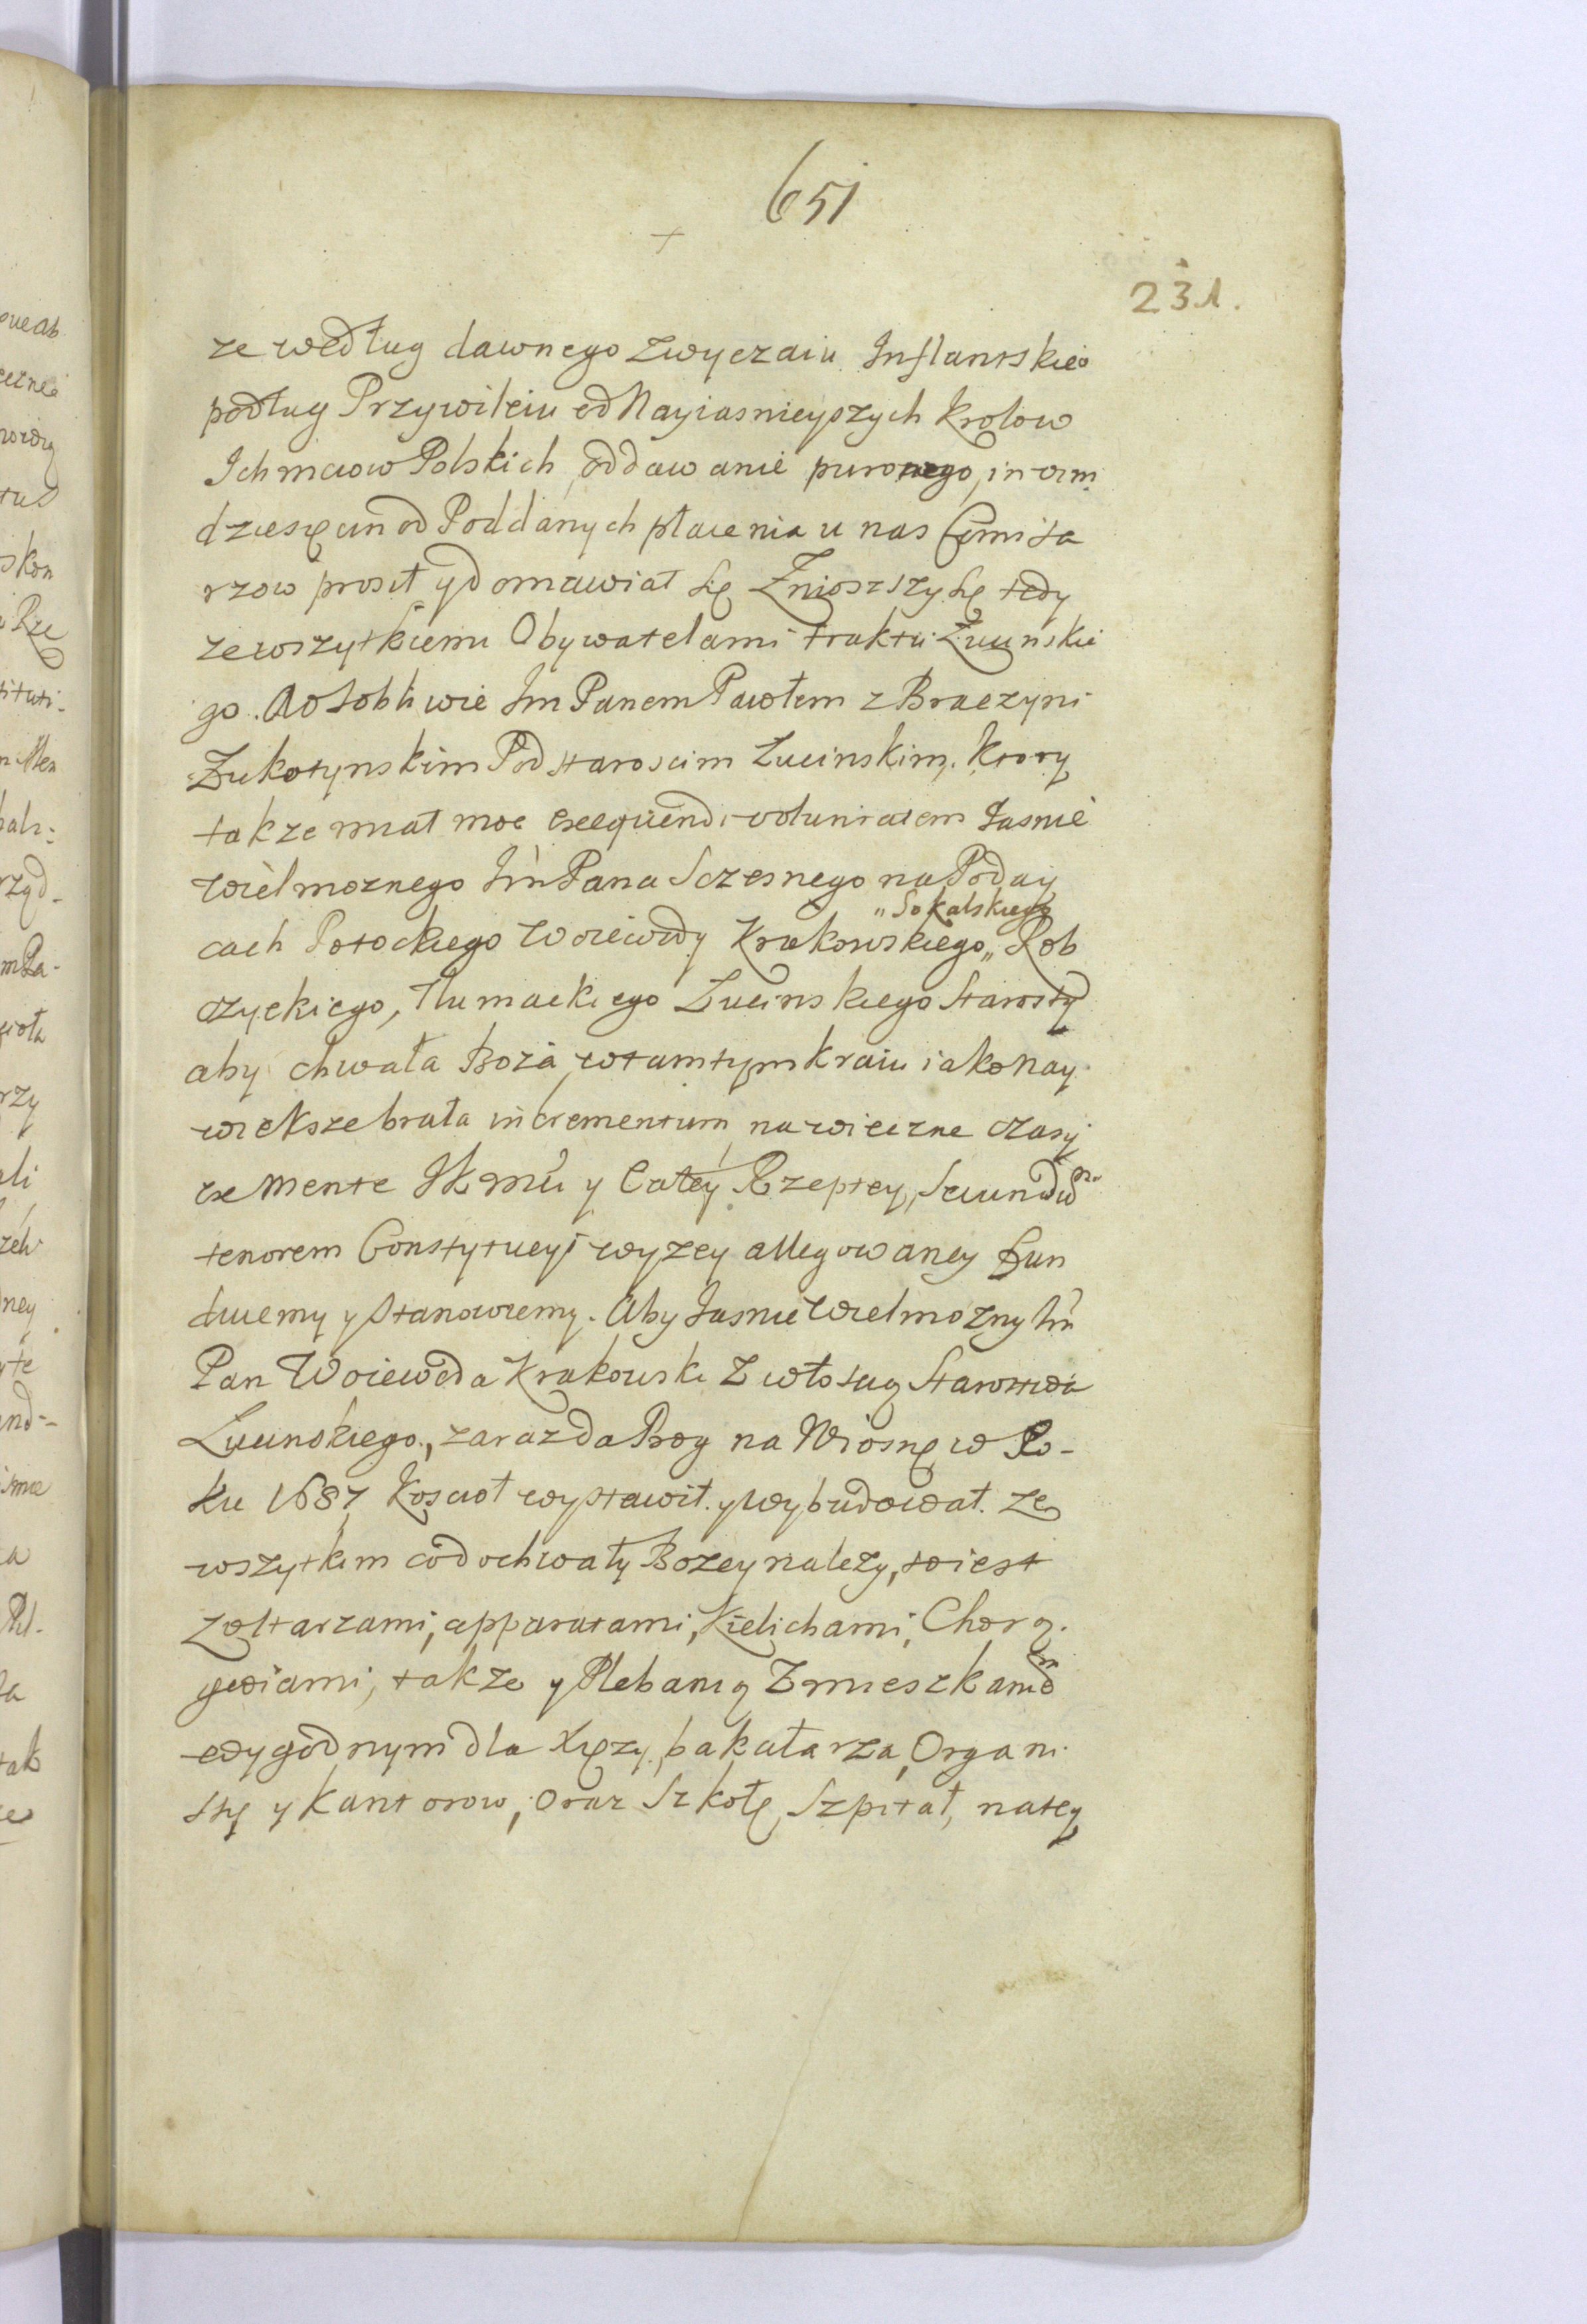 651
231.
ze według dawnego zwyczaiu Inflantskieo
podług Przywileiu od Nayiasnieyszych Krolow
Ichmciow Polskich, oddawanie purowego, in vim
dziesięcin od Poddanych płacenia u nas Comissa
rzow prosił y domawiał się Zniosszy się tedy
ze wszytkiemi Obywatelami traktu Lucinskie
go. A osobliwie Im Panem Pawłem z Braczyni
Zukotynskim Podstaroscim Lucinskim. Ktory
takze miał moc exequendi voluntatem Jasnie
Wielmoznego Im Pana Sczesnego na Poday
cach Potockiego Woiewody Krakowskiego „ Rob
„ Sokalskiego
czyckiego, Tlumackiego Lucinskiego Starosty
aby chwała Boza w tamtym kraiu iako nay
wieksze brała incrementum na wieczne czasy
ex mente JKmci y Całey Rzeptey, secundum
tenorem Constytucyi wyzey allegowaney Fun
duiemy y stanowiemy. Aby Jasnie Wielmozny Im
Pan Woiewoda Krakowski z włosciey Starostwa
Lucinskiego, zaraz da Bog na Wiosnę w Ro-
ku 1687 Koscioł wystawił y wybudował. Ze
wszytkim co do chwały Bozey nalezy, to iest
z oltarzami, apparatami, Kielichami, Chorą.
gwiami, takze y Plebanią z mieszkaniem
wygodnym dla Xięzy, bakałarza, Organi
sty y Kantorow, oraz Szkołę Szpitał, na tey